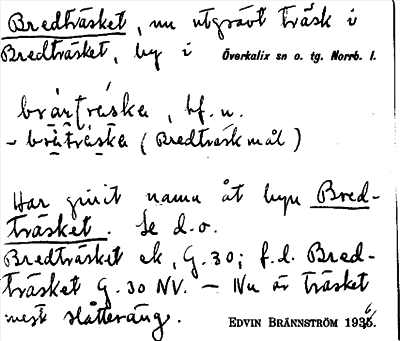 Bredträsket, nu utgrävt träsk i
Bredträsket, by i Överkalix sn o. tg. Norrb. l.
bråtträska, bf. n.
- bråträska (Bredträskmål)
Har givit namn åt byn Bred-
träsket. Se d.o.
Bredträsket ek, G. 30; f.d. Bred-
träsket G. 30 NV. — Nu är träsket
mest slåtteräng.
EDVIN BRÄNNSTRÖM 1936.